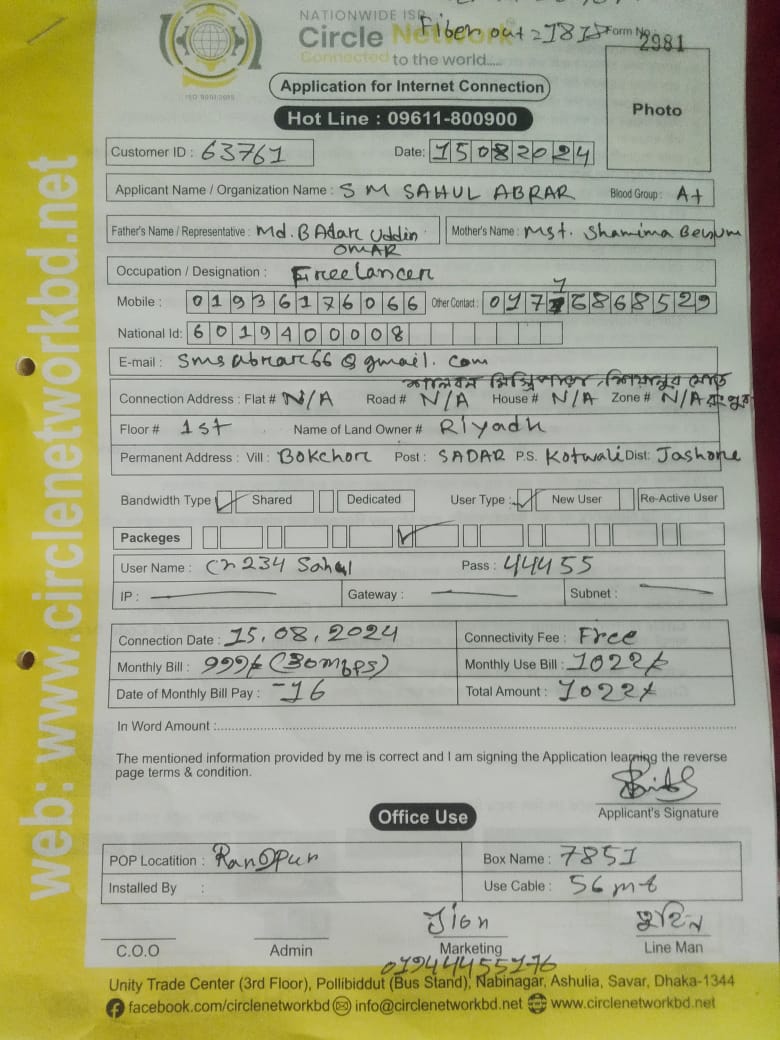 NATIONWIDE ISP
Fiber out = 7878
Circle Network
Form No. 2981
Connected to the world.....
ISO 9001:2015
Application for Internet Connection
Photo
Hot Line : 09611-800900
Customer ID : 63761 Date: 15082024
Applicant Name / Organization Name : S M SAHUL ABRAR Blood Group : A+
Father's Name / Representative : Md. BAdar Uddin OMAR Mother's Name : Mst. Shamima Begum
Occupation / Designation : Freelancer
Mobile : 01936176066 Other Contact : 01776868529
National Id: 6019400008
E-mail : smsabrar66@gmail.com
শালবন মিস্ত্রিপাড়া,
Connection Address : Flat # N/A Road # N/A House # N/A Zone # N/A রংপুর
Floor # 1st Name of Land Owner # Riyadh
Permanent Address : Vill : Bokchor Post : SADAR P.S. Kotwali Dist: Jashore
Bandwidth Type Shared Dedicated User Type : New User Re-Active User
Packeges
User Name : Cn234 Sahul Pass : 44455
IP : Gateway : Subnet :
Connection Date : 15.08.2024 Connectivity Fee : Free
Monthly Bill : 999/- (30mbps) Monthly Use Bill : 1022/-
Date of Monthly Bill Pay : -16 Total Amount : 1022/-
In Word Amount :
The mentioned information provided by me is correct and I am signing the Application learning the reverse
page terms & condition.
Applicant's Signature
Office Use
POP Locatition : Rangpur Box Name : 7851
Installed By : Use Cable : 56 mt
C.O.O Admin Marketing Line Man
01944455176
Unity Trade Center (3rd Floor), Pollibiddut (Bus Stand), Nabinagar, Ashulia, Savar, Dhaka-1344
facebook.com/circlenetworkbd info@circlenetworkbd.net www.circlenetworkbd.net
web: www.circlenetworkbd.net